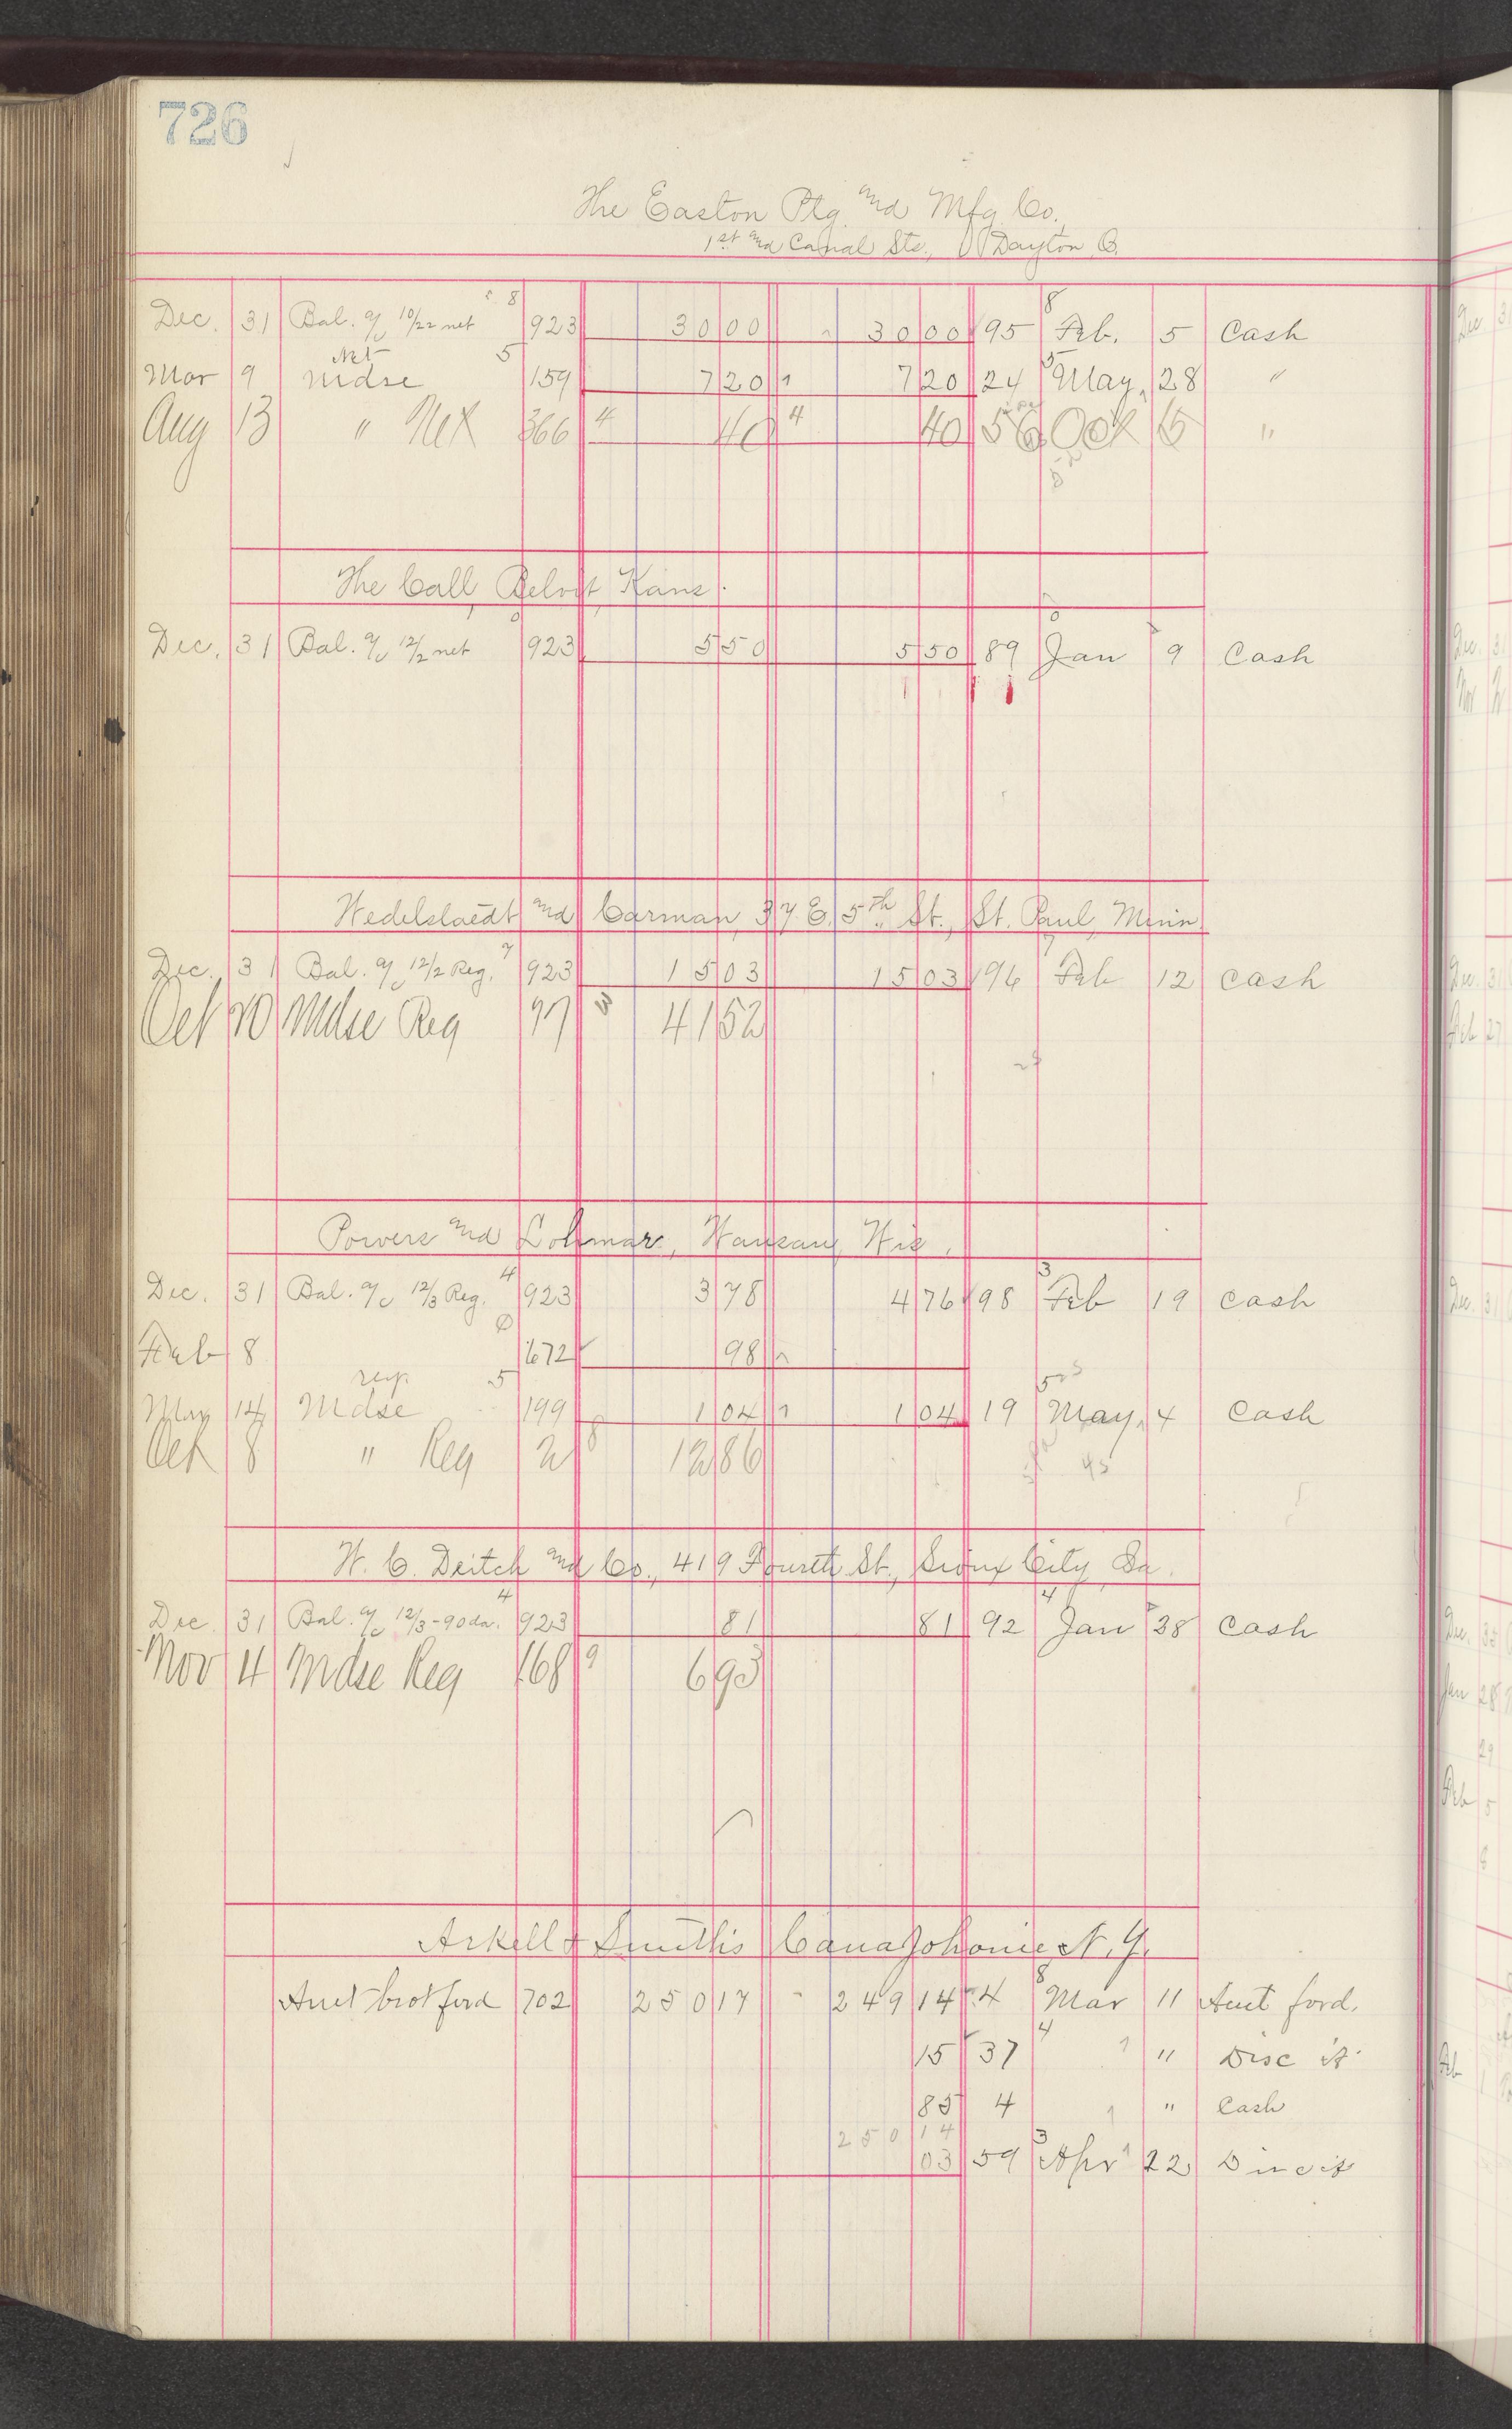 726
The Easton Ptg. and Mfg. Co.,
1st and Canal Sts., Dayton, O.
8 8
Dec. 31 Bal. a/c 10/22 net 923 30 00 30 00 95 Feb. 5 Cash
Net 5 5
Mar 9 Mdse 159 7 20 7 20 24 May, 28 "
Aug 13 " Net 366 4 40 4 40 56 Oct 15 "
The Call, Beloit, Kans.
Dec. 31 Bal. a/c 12/2 net 923 5 50 5 50 89 Jan 9 Cash
and Carman, 37 E. 5th St., St. Paul, Minn.
7
Dec. 31 Bal. a/c 12/2 Reg. 923 15 03 15 03 96 Feb 12 Cash
Oct 20 Mdse Reg 77 3 41 52
Powers and Lohmar, Wausau, Wis.
4 3
Dec. 31 Bal. a/c 12/3 Reg. 923 3 78 4 76 98 Feb 19 Cash
Feb 8 672 98
reg. 5 5
May 14 Mdse 199 1 04 1 04 19 May, 4 Cash
Oct 8 " Reg 21 8 12 86
W. C. Deitch and Co., 419 Fourth St., Sioux City, Ia.
4 4
Dec 31 Bal. a/c 12/3 - 90 da. 923 81 81 92 Jan 28 Cash
Nov 4 Mdse Reg 168 9 6 93
Arkell & Smiths Canajoharie, N.Y.
8
Amt brot ford 702 250 17 249 14 4 Mar 11 Amt ford.
4
15 37 " Disc it
85 4 " Cash
250 14 3
03 59 Apr 22 Disc it